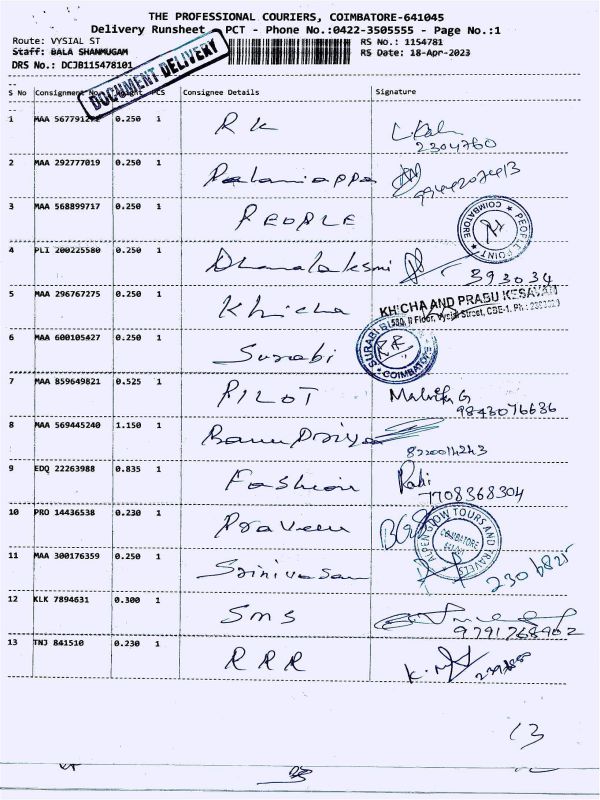 THE PROFESSIONAL COURIERS, COIMBATORE-641045
Delivery Runsheet - PCT - Phone No.:0422-3505555 - Page No.:1
Route: VYSIAL ST RS No.: 1154781
Staff: BALA SHANMUGAM RS Date: 18-Apr-2023
DRS No.: DCJB115478101
DOCUMENT DELIVERY
S No Consignment PCS Consignee Details Signature
1 0.250 1 RK
2304760
2 MAA 292777019 0.250 1 Palaniappa 9944207413
3 MAA 568899717 0.250 1 PEOPLE
PEOPLE POINT COIMBATORE
4 PLI 200225580 0.250 1 Dhanalaksmi 393034
5 MAA 296767275 0.250 1 Khicha
KHICHA AND PRABU KESAVAN
II Floor, Vysial Street, CBE-1. Ph:
6 MAA 600105427 0.250 1 Surabi
SURABI COIMBATORE
7 MAA 859649821 0.525 1 PILOT
9843076636
8 MAA 569445240 1.150 1 Banupriya
9 EDQ 22263988 0.835 1 Fashion
7708368304
10 PRO 14436538 0.230 1 Praveen
ALPEN GLOW TOURS AND TRAVELS
COIMBATORE
11 MAA 300176359 0.250 1 Srinivasan
12 KLK 7894631 0.300 1 SMS
9791768902
13 TNJ 841510 0.230 1 RRR
13